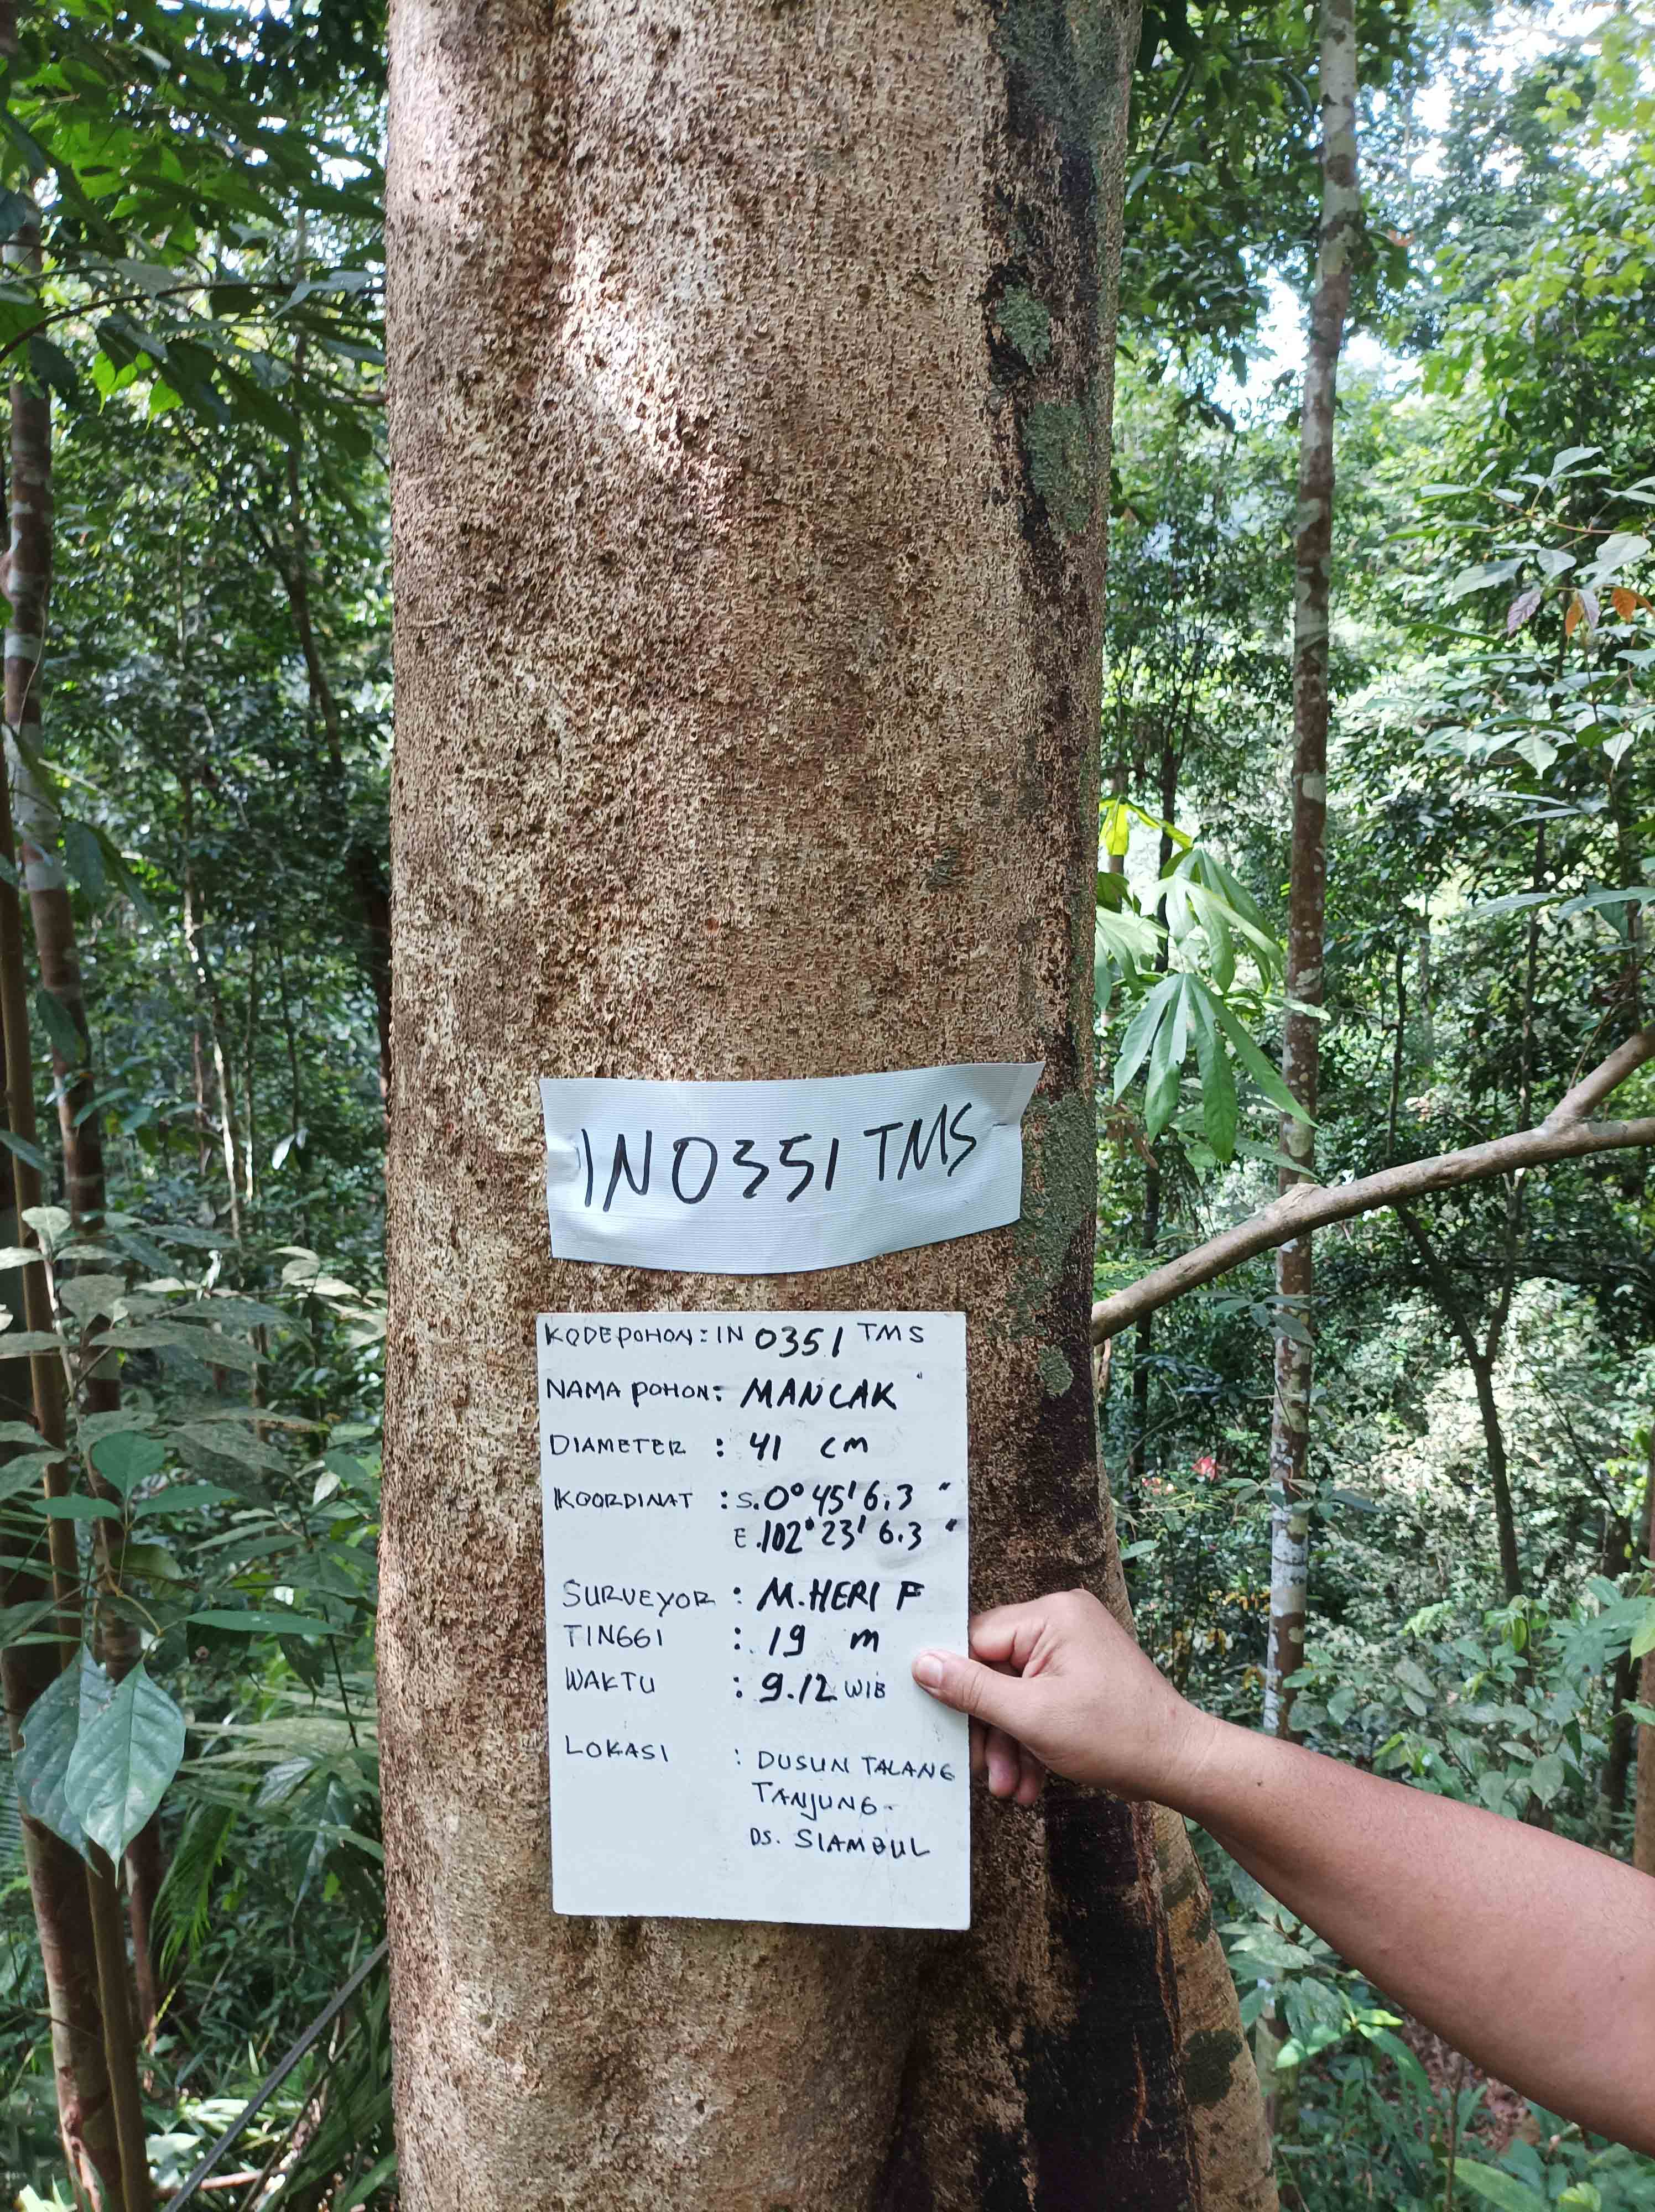 IN0351 TMS
KODE POHON : IN 0351 TMS
NAMA POHON : MANCAK
DIAMETER : 41 cm
KOORDINAT : S. 0° 45' 6.3 "
E. 102° 23' 6.3 "
SURVEYOR : M. HERI F
TINGGI : 19 m
WAKTU : 9.12 WIB
LOKASI : DUSUN TALANG
TANJUNG -
DS. SIAMBUL